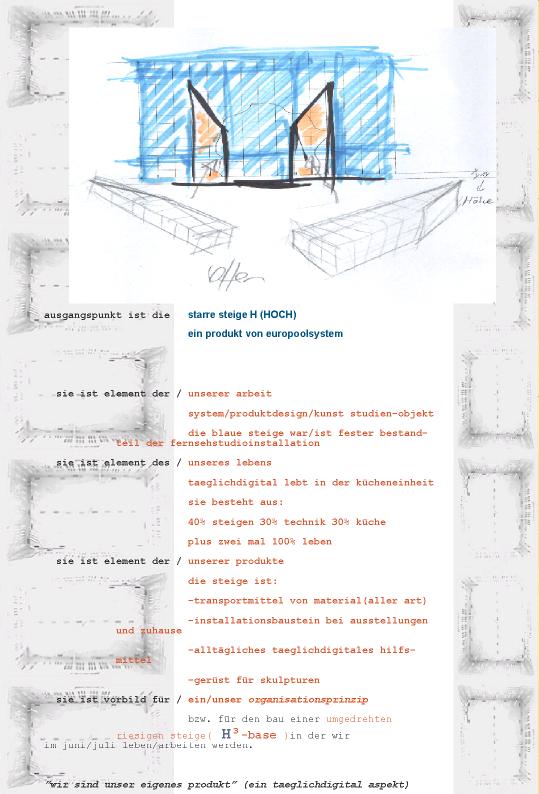 Höhe
offen
ausgangspunkt ist die starre steige H (HOCH)
ein produkt von europoolsystem
sie ist element der / unserer arbeit
system/produktdesign/kunst studien-objekt
die blaue steige war/ist fester bestand-
teil der fernsehstudioinstallation
sie ist element des / unseres lebens
taeglichdigital lebt in der kücheneinheit
sie besteht aus:
40% steigen 30% technik 30% küche
plus zwei mal 100% leben
sie ist element der / unserer produkte
die steige ist:
-transportmittel von material(aller art)
-installationsbaustein bei ausstellungen
und zuhause
-alltägliches taeglichdigitales hilfs-
mittel
-gerüst für skulpturen
sie ist vorbild für / ein/unser organisationsprinzip
bzw. für den bau einer umgedrehten
riesigen steige( H³-base )in der wir
im juni/juli leben/arbeiten werden.
"wir sind unser eigenes produkt" (ein taeglichdigital aspekt)